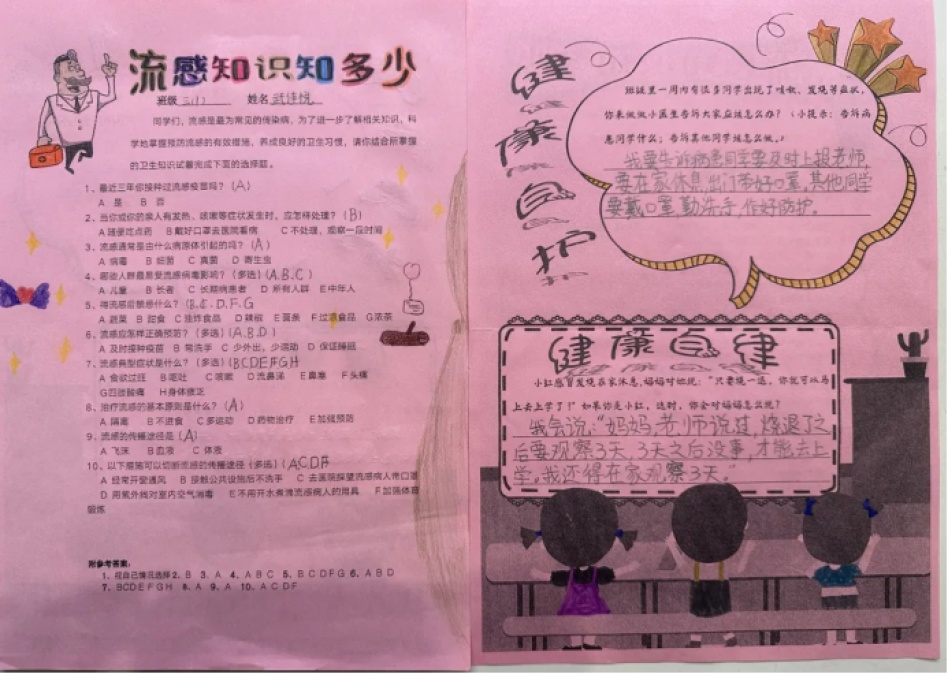 流感知识知多少
班级 三(1) 姓名
同学们，流感是最为常见的传染病，为了进一步了解相关知识，科
学地掌握预防流感的有效措施，养成良好的卫生习惯，请你结合所掌握
的卫生知识试着完成下面的选择题。
1、最近三年你接种过流感疫苗吗？（A）
A 是 B 否
2、当你或你的亲人有发热、咳嗽等症状发生时，应怎样处理？（B）
A 随便吃点药 B 戴好口罩去医院看病 C 不处理，观察一段时间
3、流感通常是由什么病原体引起的吗？（A）
A 病毒 B 细菌 C 真菌 D 寄生虫
4、哪些人群最易受流感病毒影响？（多选）（A.B.C）
A 儿童 B 长者 C 长期病患者 D 所有人群 E 中年人
5、得流感后禁忌什么？（B.C.D.F.G
A 蔬菜 B 甜食 C 油炸食品 D 辣椒 E 面条 F 过咸食品 G 浓茶
6、流感应怎样正确预防？（多选）（A.B.D）
A 及时接种疫苗 B 常洗手 C 少外出，少运动 D 保证睡眠
7、流感典型症状是什么？（多选）（BCDEFGH
A 食欲过旺 B 呕吐 C 咳嗽 D 流鼻涕 E 鼻塞 F 头痛
G 四肢酸痛 H 身体疲乏
8、治疗流感的基本原则是什么？（A）
A 隔离 B 不进食 C 多运动 D 药物治疗 E 加强预防
9、流感的传播途径是（A）
A 飞沫 B 血液 C 体液
10、以下措施可以切断流感的传播途径（多选）（ACDF
A 经常开窗通风 B 接触公共设施后不洗手 C 去医院探望流感病人带口罩
D 用紫外线对室内空气消毒 E 不用开水煮沸流感病人的用具 F 加强体育
锻炼
附参考答案：
1、视自己情况选择 2、B 3、A 4、A B C 5、B C D F G 6、A B D
7、BCDE F G H 8、A 9、A 10、A C D F
健康自护
班级里一周内有很多同学出现了咳嗽、发烧等症状，
你来做做小医生告诉大家应该怎么办？（小提示：告诉病
患同学什么；告诉其他同学该怎么做。）
我要告诉病患同学要及时上报老师，
要在家休息，出门带好口罩，其他同学
要戴口罩，勤洗手，作好防护。
健康自律
小红感冒发烧在家休息，妈妈对她说：“只要烧一退，你就可以马
上去上学了！”如果你是小红，这时，你会对妈妈怎么说？
我会说：“妈妈，老师说过，烧退了之
后要观察3天，3天之后没事，才能去上
学。我还得在家观察3天。”